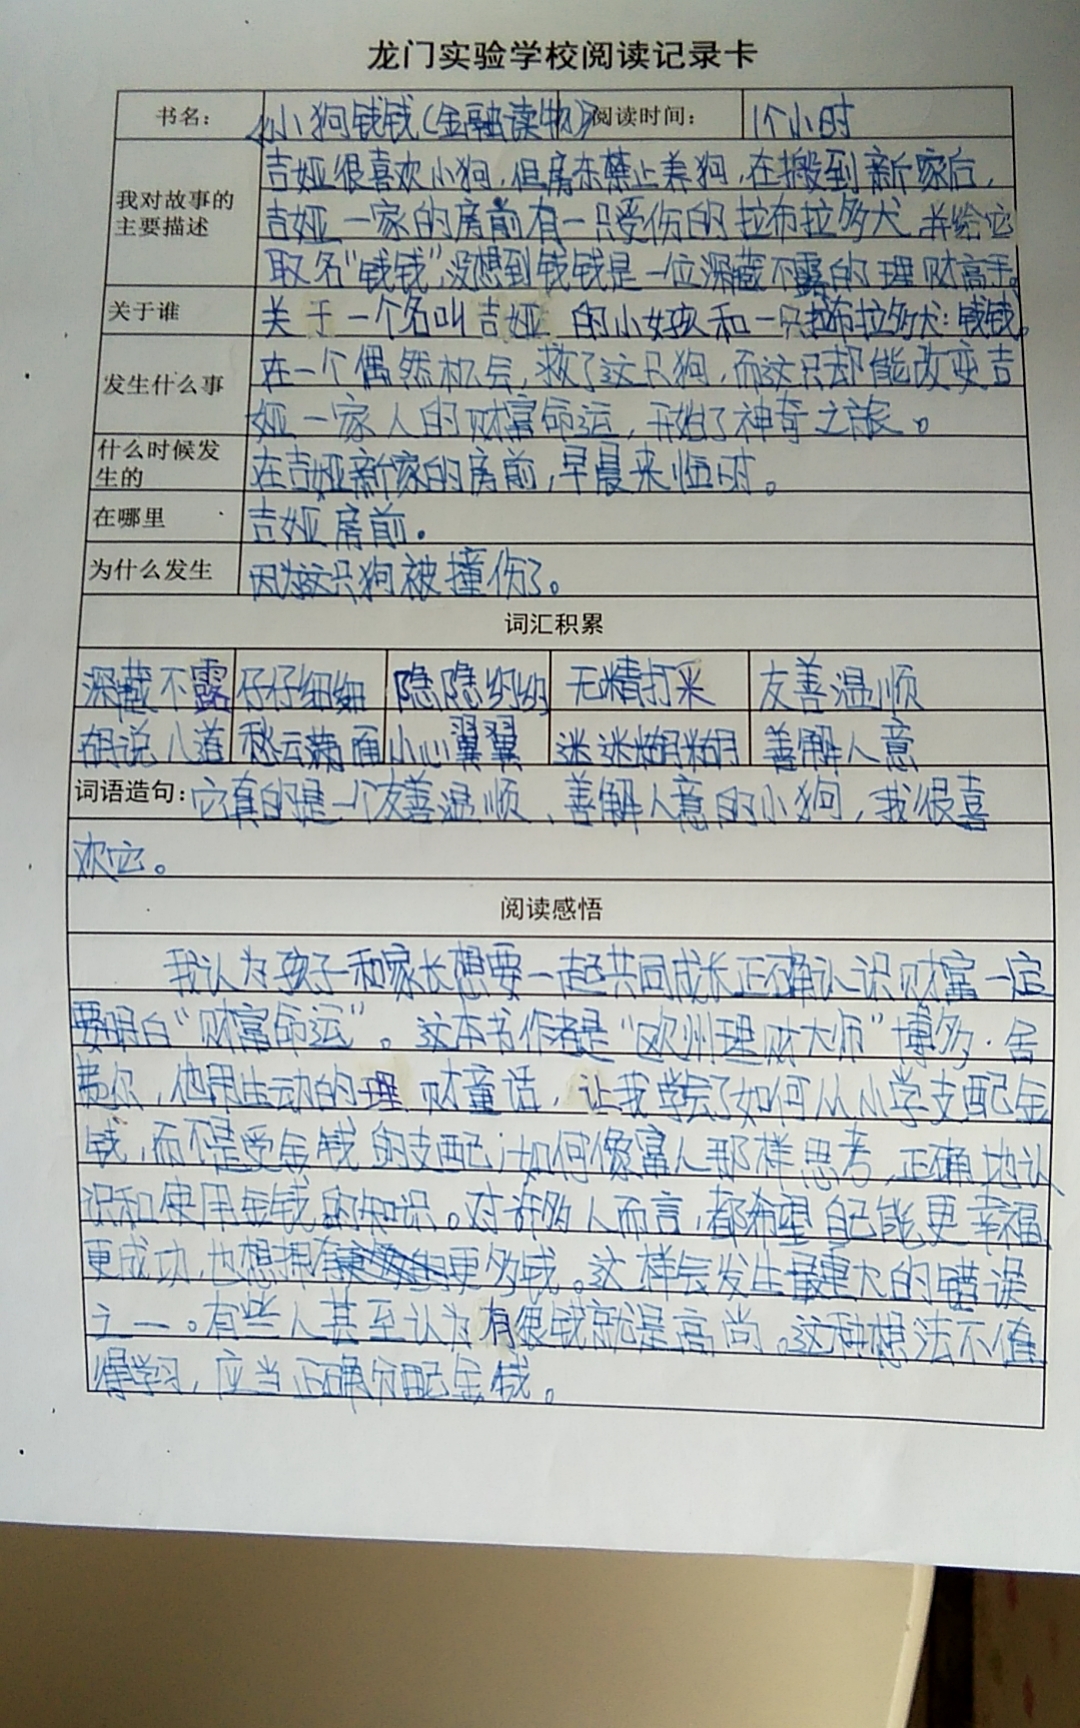 龙门实验学校阅读记录卡
书名： 《小狗钱钱(金融读物)》 阅读时间： 1个小时
我对故事的主要描述
吉娅很喜欢小狗，但房东禁止养狗，在搬到新家后，
吉娅一家的房前有一只受伤的拉布拉多犬，并给它
取名“钱钱”，没想到钱钱是一位深藏不露的理财高手。
关于谁 关于一个名叫吉娅的小女孩和一只拉布拉多犬：钱钱。
发生什么事
在一个偶然机会，救了这只狗，而这只却能改变吉
娅一家人的财富命运，开始了神奇之旅。
什么时候发生的 在吉娅新家的房前，早晨来临时。
在哪里 吉娅房前。
为什么发生 因为这只狗被撞伤了。
词汇积累
深藏不露 仔仔细细 隐隐约约 无精打采 友善温顺
胡说八道 愁云满面 小心翼翼 迷迷糊糊 善解人意
词语造句：它真的是一个友善温顺、善解人意的小狗，我很喜
欢它。
阅读感悟
我认为孩子和家长想要一起共同成长正确认识财富一定
要明白“财富命运”。这本书作者是“欧州理财大师”博多·舍
费尔，他用生动的理财童话，让我学会了如何从小学支配金
钱，而不是受金钱的支配；如何像富人那样思考，正确地认
识和使用金钱的知识。对许多人而言，都希望自己能更幸福，
更成功，也想拥有更多钱。这样会发生最重大的错误
之一。有些人甚至认为有很钱就是高尚。这种想法不值
得学习，应当正确分配金钱。